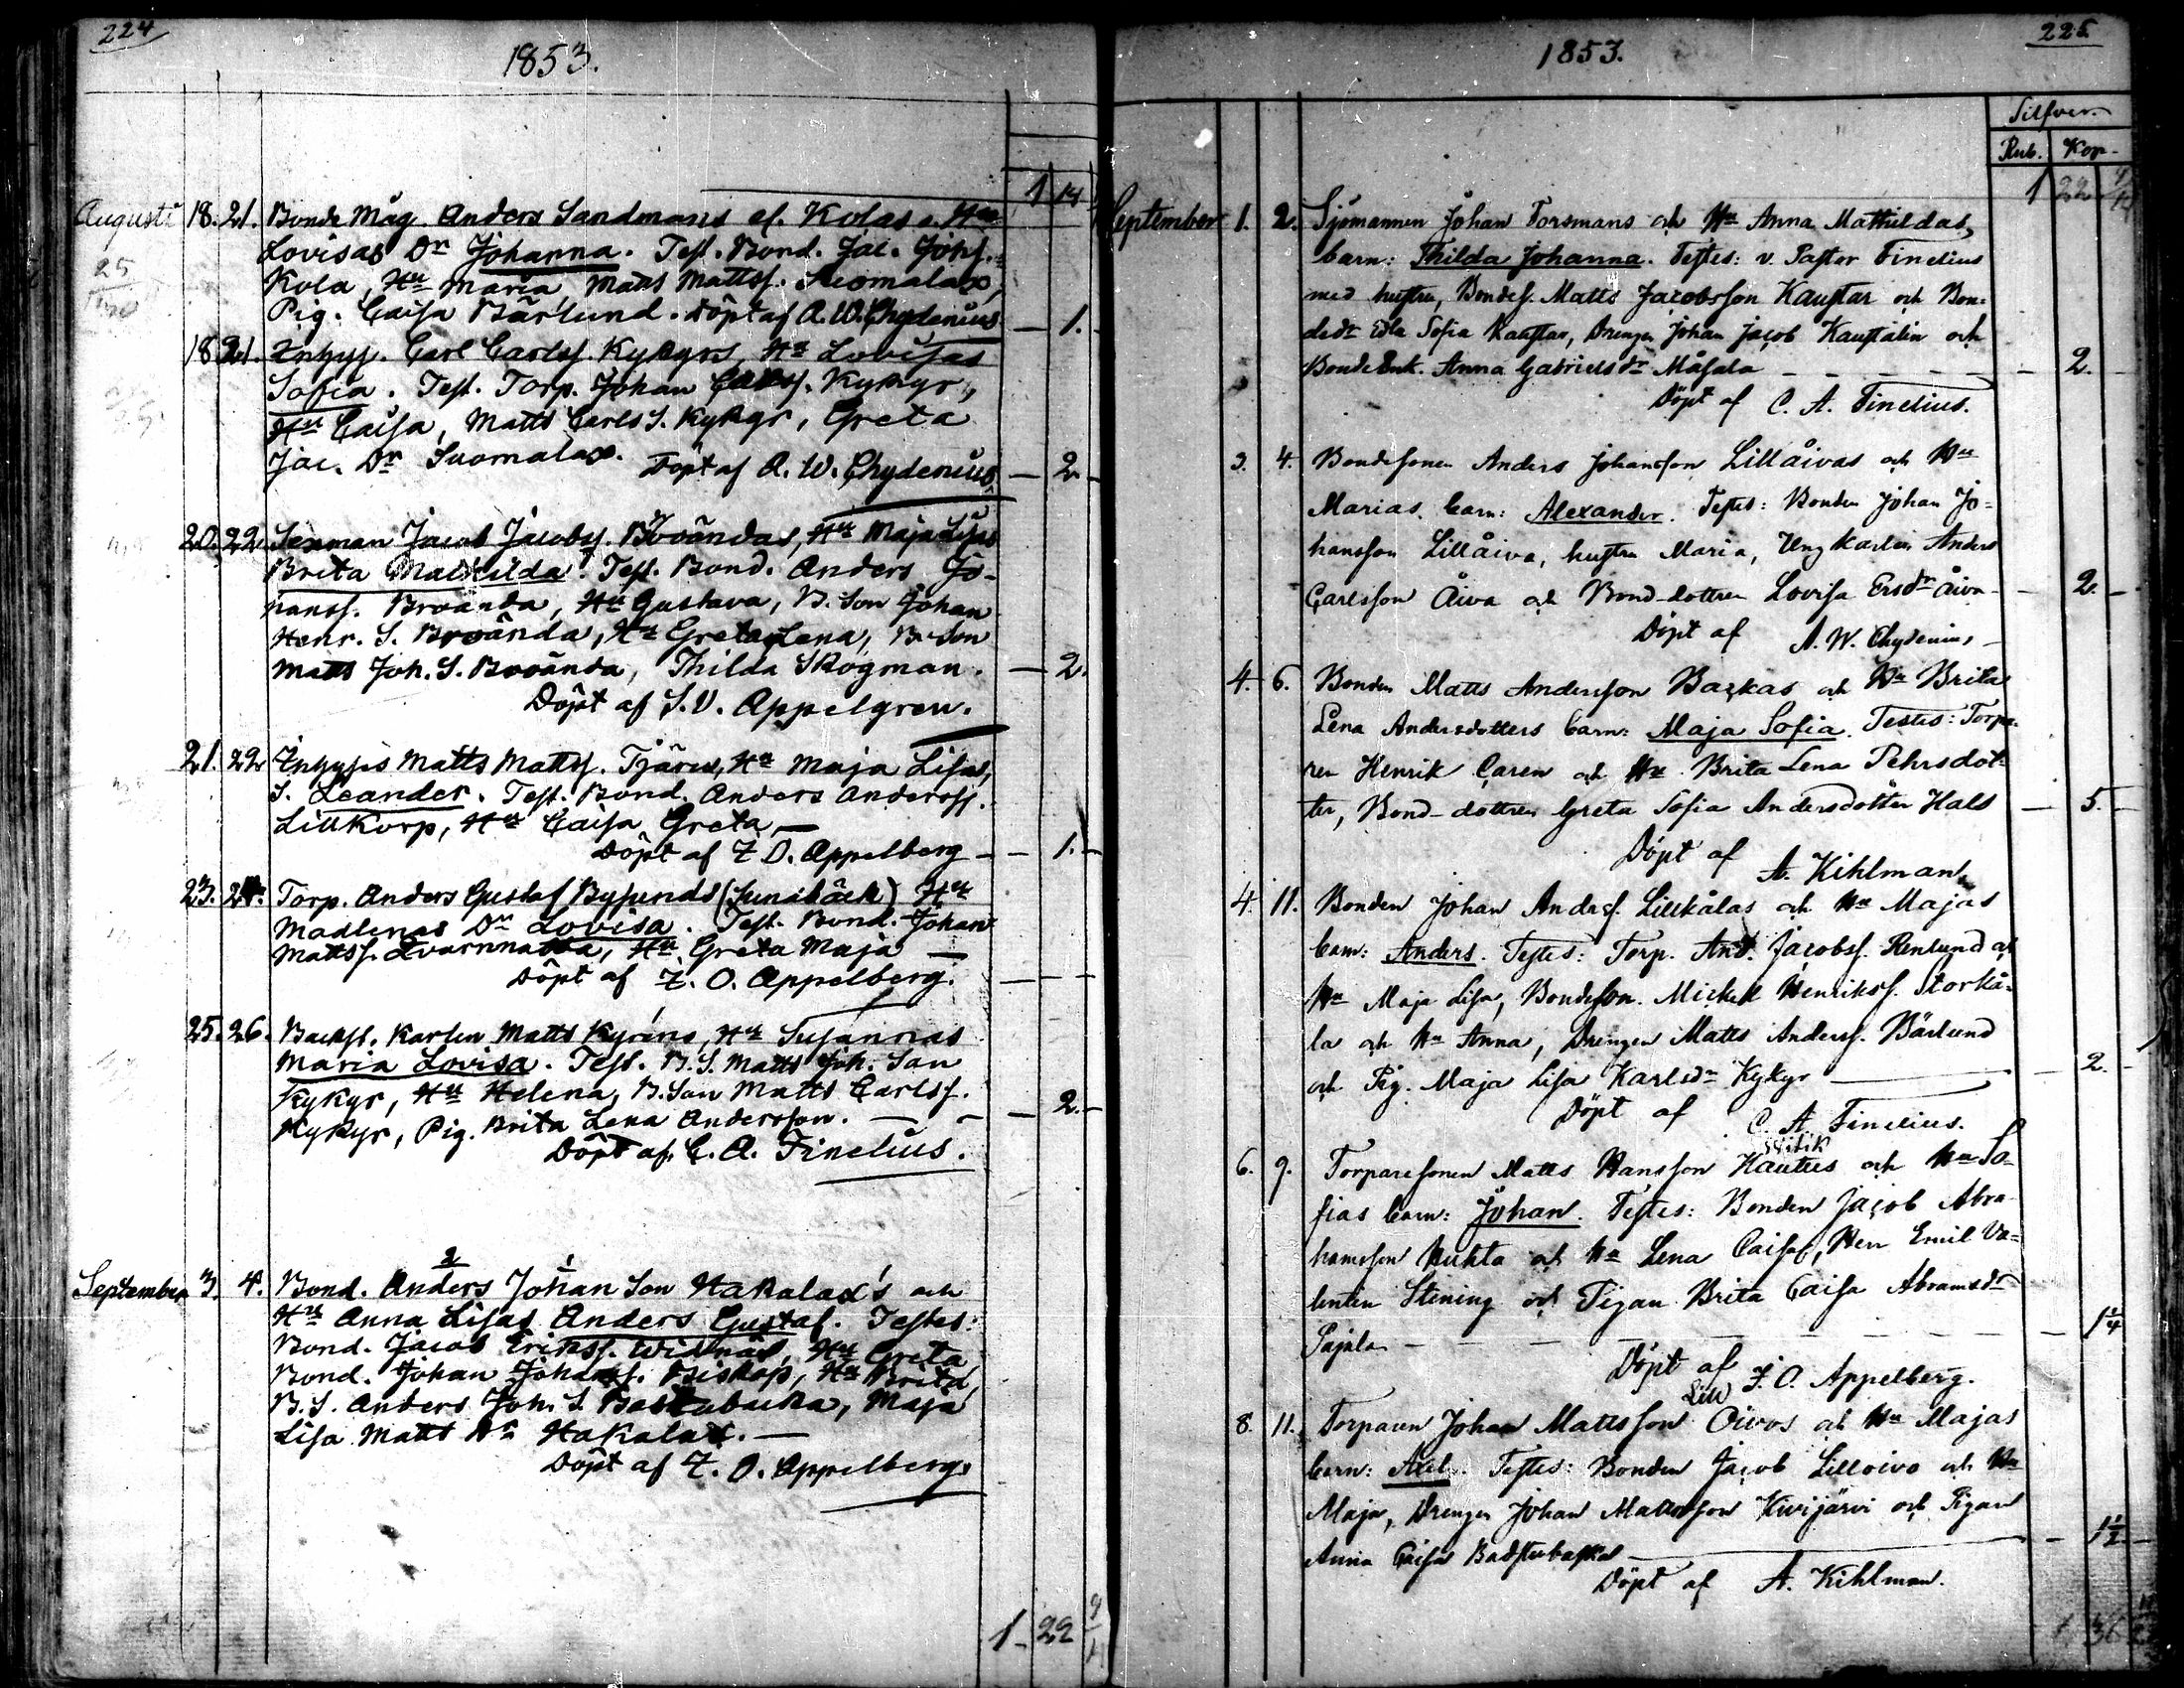 224
1853.
1 14
Augusti 18. 21. Bonde Måg. Anders Sandmans af Kolas o. Hu
Lovisas Dr Johanna. Test. Bond. Jac. Johs.
Kola, Hu Maria Matts Mattss.
Pig. Caisa Bärlund. Döpt af A. W. Chydenius — 1.
18. 21. Inhys. Carl Carlss. Kykyrs, Hu Lovisas
Sofia. Test. Torp. Johan Carlss. Kykyr,
Hu Caisa, Matts Carls S. Kykyr, Greta
Jac. Dr Suomalax. Döpt af A. W. Chydenius — 2 —
20. 22 Sexman Jacob Jacobss. Broändas, Hu Maja Lisas
Brita Mathilda. Test. Bond. Anders Jo-
hanss. Broända, Hu Gustava, B. Son Johan
Henr. S. Broända, Hu Greta Lena, B. Son
Matts Joh. S. Broända, Thilda Skogman. — 2.
Döpt af S. V. Appelgren.
21. 22 Inhyses Matts Mattss. Tjäru, Hu Maja Lisas,
S. Leander. Test. Bond. Anders Anderss.
Lillkorp, Hu Caisa Greta —
Döpt af Z. O. Appelberg — 1. —
23. 24. Torp. Anders Gustaf Bysunds (Sunabäck) Hu
Madlenas Dr Lovisa. Test. Bond. Johan
Mattss. Qvarnmatta, Hu Greta Maja —
Döpt af Z. O. Appelberg. — — —
25. 26. Backst. Karlen Matts Kyrins, Hu Susannas
Maria Lovisa. Test. B. S. Matts Joh. Son
Kykyr, Hu Helena, B. Son Matts Carlss.
Kykyr, Pig. Brita Lena Andersson. — — 2. —
Döpt af C. A. Finelius.
September 3. 4. Bond. Anders Johan Son Hakalax's och
Hu Anna Lisas Anders Gustaf. Testes:
Bond. Jacob Erikss. Widnäs, Hu Greta
Bond. Johan Johanss. Biskop, Hu Brita,
B. S. Anders Joh. S. Bastubacka, Maja
Lisa Matts Dr Hakalax. —
Döpt af Z. O. Appelberg.
1 - 22
225
1853.
Silfver.
Rub. Kop.
1 22
September 1. 2. Sjömannen Johan Forsmans och Hu Anna Mathildas,
barn: Thilda Johanna. Testes: v. Pastor Finelius
med hustru, Bondes. Matts Jacobsson Kaustar och Bon-
dedr Edla Sofia Kaustar, Drengen Johan Jacob Kaustalin och
BondeEnk. Anna Gabrielsdr Måsala — 2. —
Döpt af C. A. Finelius.
3. 4. Bondesonen Anders Johansson Lillåivas och Hu
Marias barn: Alexander. Testes: Bonden Johan Jo-
hansson Lillåiva, hustru Maria, Ungkarlen Anders
Carlsson Åiva och Bond-dottren Lovisa Ersdr Åiva — 2. —
Döpt af A. W. Chydenius —
4. 6. Bonden Matts Andersson Backas och Hu Brita
Lena Andersdotters barn: Maja Sofia. Testes: Torpa-
ren Henrik Caren och Hu Brita Lena Pehrsdot-
ter, Bond-dottren Greta Sofia Andersdotter Hals — 5. —
Döpt af A. Kihlman.
4. 11. Bonden Johan Anderss. Lillkålas och Hu Majas
barn: Anders. Testes: Torp. And. Jacobss. Renlund och
Hu Maja Lisa, Bondeson. Mickel Henrikss. Storkå-
la och Hu Anna, Drengen Matts Anderss. Bärlund
och Pig. Maja Lisa Karlsdr Kykyr — 2. —
Döpt af C. A. Finelius.
6. 9. Torparesonen Matts Hansson Hautus och Hu So-
fias barn: Johan. Testes: Bonden Jacob Abra-
hamsson Huhta och Hu Lena Caisa, Herr Emil Va-
lentin Stening och Pigan Brita Caisa Abramsdr
Pajala — 1 1/4
Döpt af Z. O. Appelberg.
Lill
8. 11. Torparen Johan Mattsson Oivos och Hu Majas
barn: Axel. Testes: Bonden Jacob Lilloivo och Hu
Maja, Drengen Johan Mattsson Kivijärvi och Pigan
Anna Caisa Badstubacka — 1 1/2 —
Döpt af A. Kihlman.